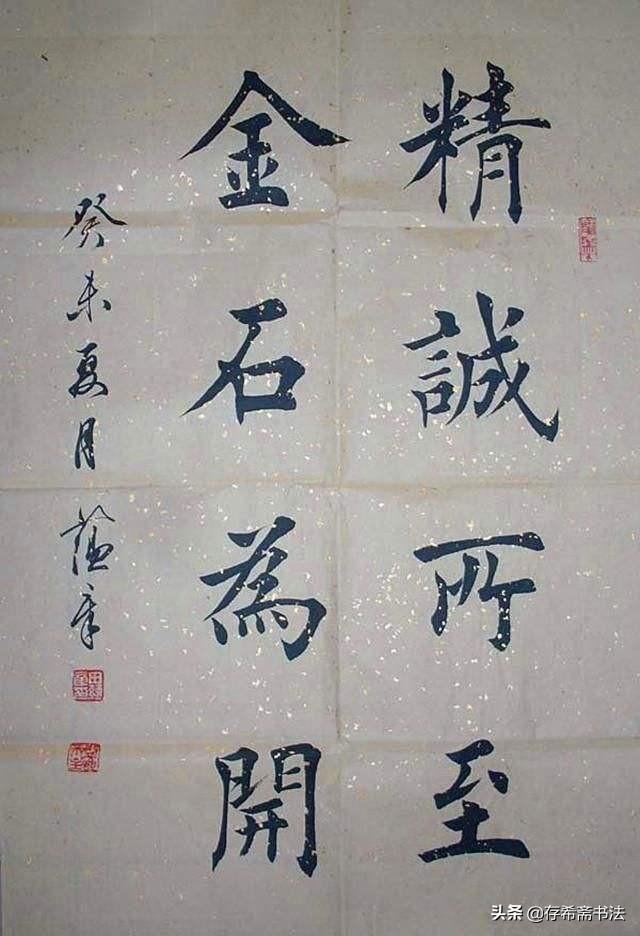 精誠所至
金石為開
癸未夏月蕴章
头条@存希斋书法